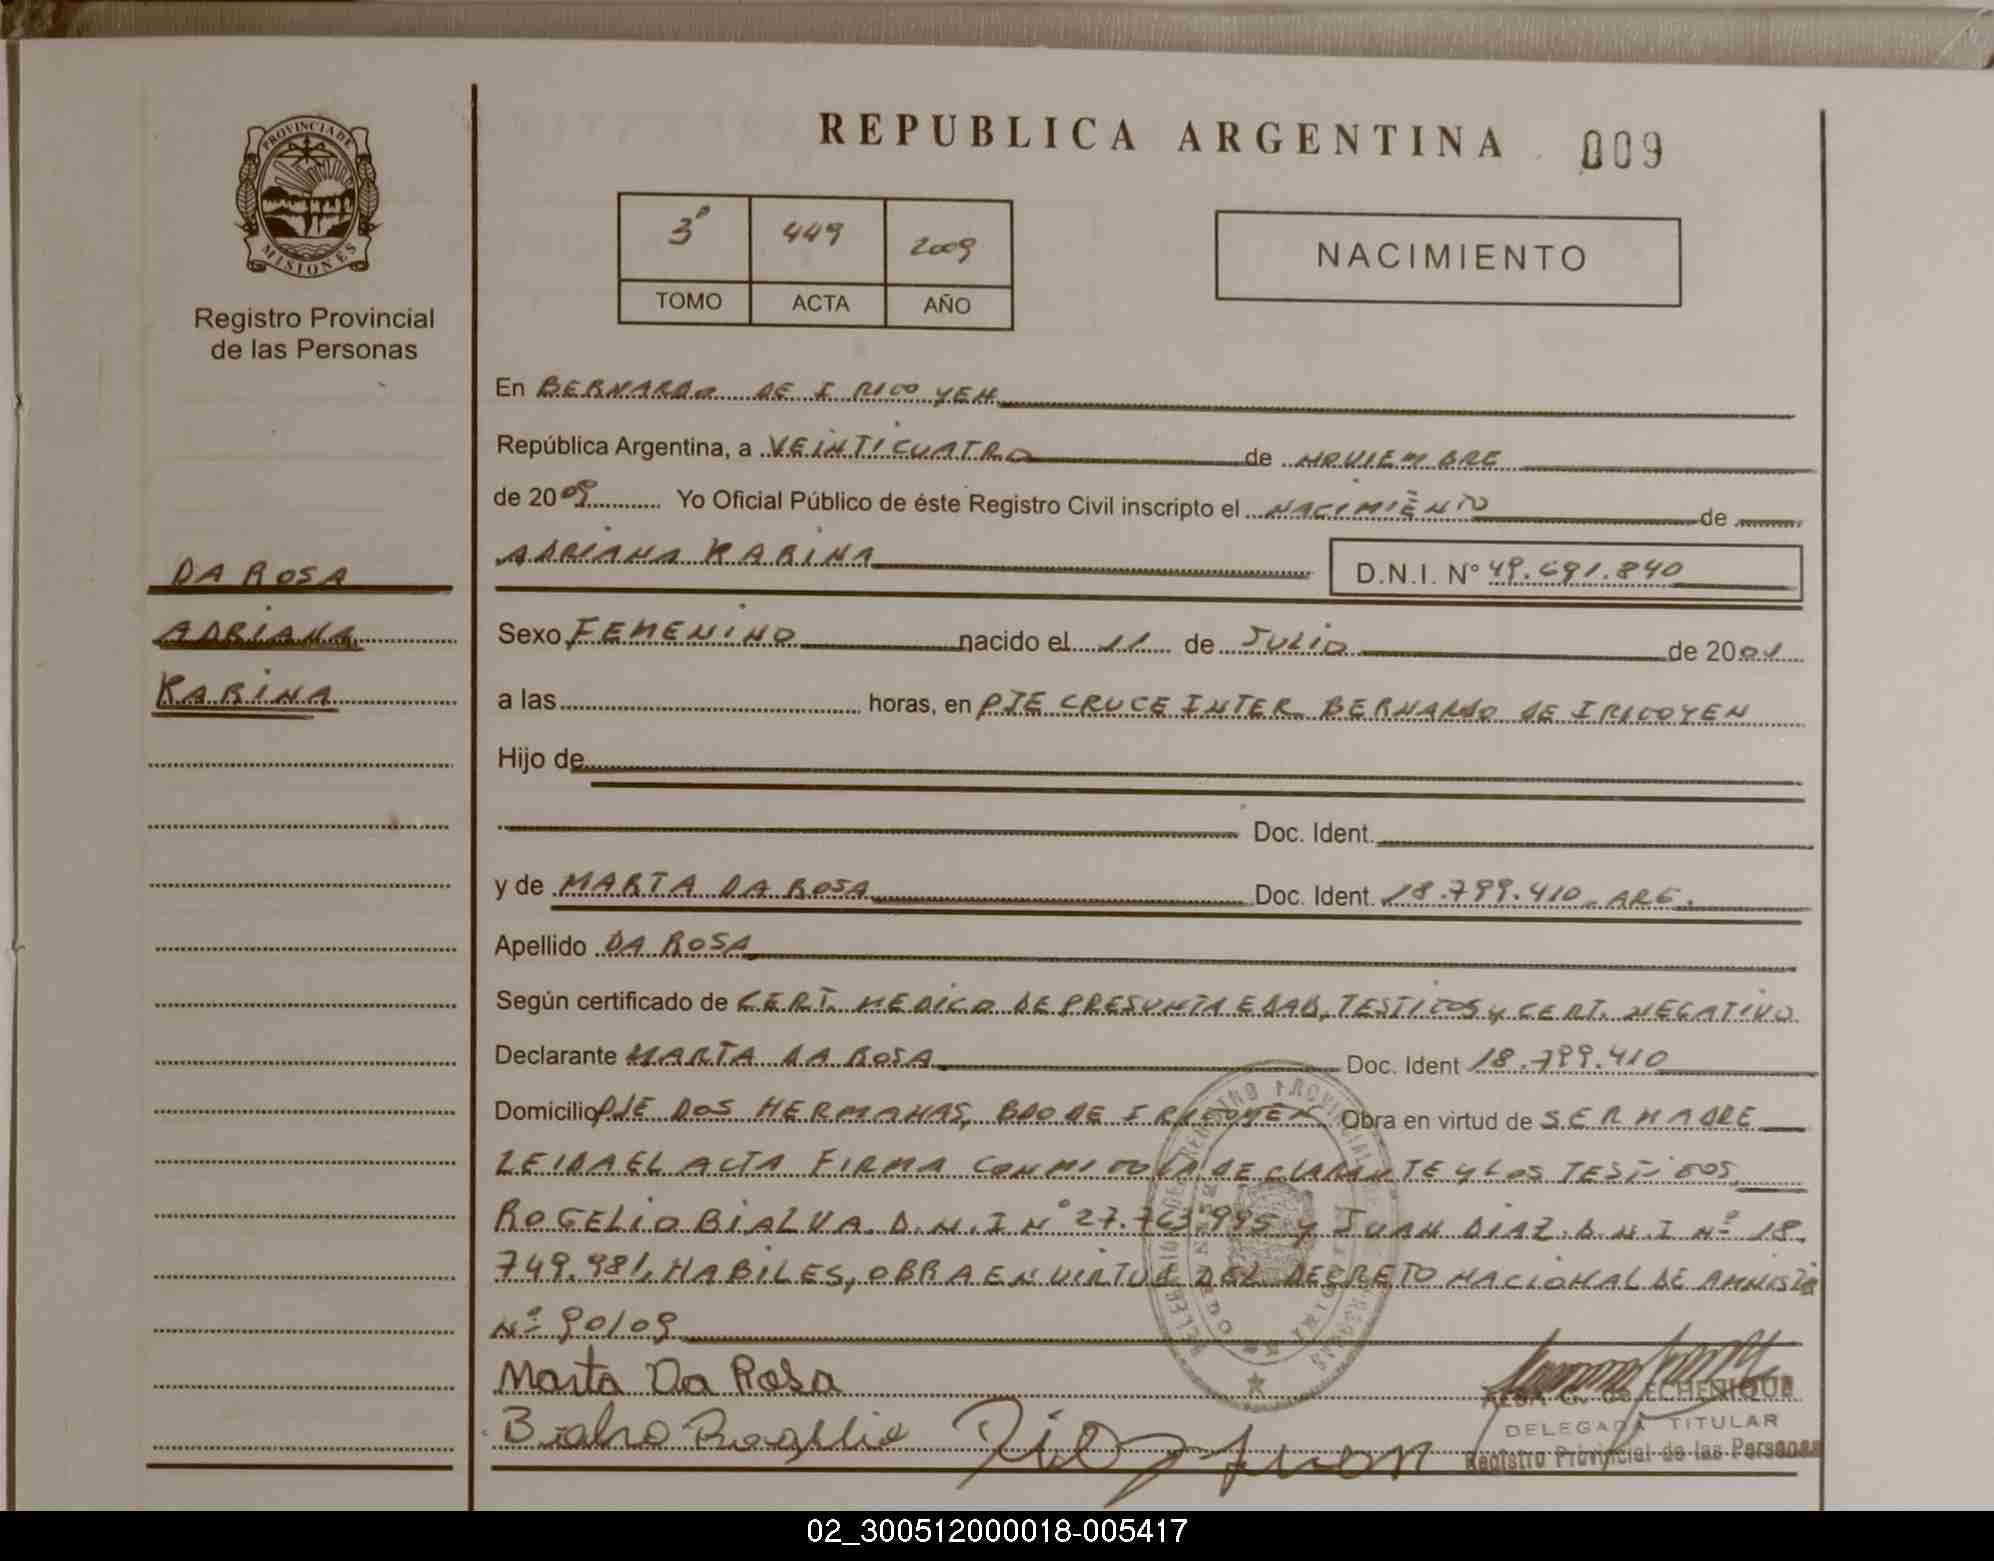 REPUBLICA ARGENTINA 009
PROVINCIA DE
MISIONES
Registro Provincial
de las Personas
3º 449 2009
TOMO ACTA AÑO
NACIMIENTO
En BERNARDO DE IRIGOYEN
República Argentina, a VEINTICUATRO de NOVIEMBRE
de 2009 Yo Oficial Público de éste Registro Civil inscripto el NACIMIENTO de
ADRIANA KARINA D.N.I. Nº 49.691.840
DA ROSA
ADRIANA
KARINA
Sexo FEMENINO nacido el 11 de JULIO de 2001
a las horas, en PJE CRUCE INTER BERNARDO DE IRIGOYEN
Hijo de
Doc. Ident.
y de MARTA DA ROSA Doc. Ident. 18.799.410 ARG.
Apellido DA ROSA
Según certificado de CERT. MEDICO DE PRESUNTA EDAD, TESTIGOS y CERT. NEGATIVO
Declarante MARTA DA ROSA Doc. Ident 18.799.410
Domicilio PJE DOS HERMANAS, BDO DE IRIGOYEN Obra en virtud de SER MADRE
LEIDA EL ACTA FIRMA CONMIGO LA DECLARANTE y LOS TESTIGOS,
ROGELIO BIALVA D.N.I Nº 27.763.995 y JUAN DIAZ D.N.I Nº 18.
749.981, HABILES, OBRA EN VIRTUD DEL DECRETO NACIONAL DE AMNISTIA
Nº 90/09
Marta Da Rosa
Rogelio Juan
DE ECHENIQUE
DELEGADA TITULAR
Registro Provincial de las Personas
02_300512000018-005417